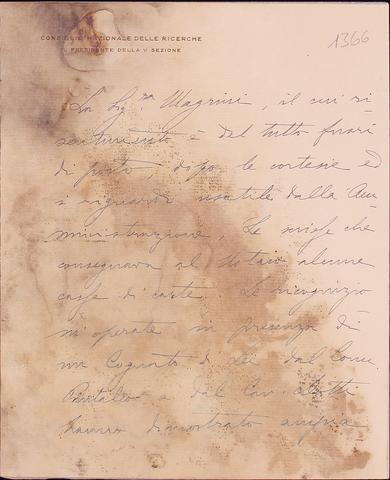 1366
CONSIGLIO NAZIONALE DELLE RICERCHE
IL PRESIDENTE DELLA V SEZIONE
La Sig.ra Magrini, il cui ri-
sentimento è del tutto fuori
di posto, dopo le cortesie ed
i riguardi usatile dalla Am-
ministrazione, Le scrisse che
consegnava al Notaio alcune
casse di carte. Le ricognizio
ni operate in presenza di
un Cognato di Lei dal Comm.
Pantaleo e dal Cav.
hanno dimostrato ampia